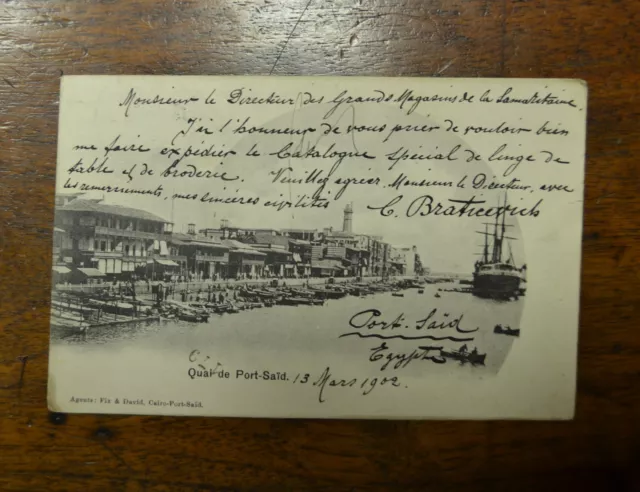 Monsieur le Directeur des Grands Magasins de la Samaritaine.
J'ai l'honneur de vous prier de vouloir bien
me faire expédier le Catalogue spécial de linge de
table et de broderie. Veuillez agréer, Monsieur le Directeur, avec
les remerciements, mes sincères civilités
C. Braticevich
Port-Saïd
Egypte
Quai de Port-Saïd. 13 Mars 1902.
Agents: Fix & David, Cairo-Port-Saïd.